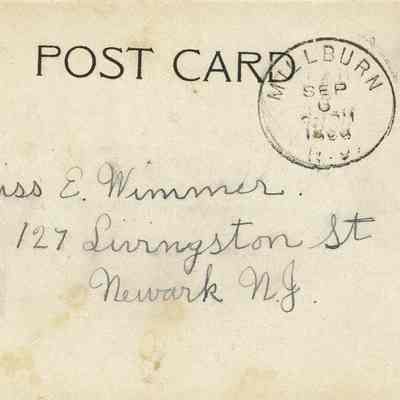 POST CARD
MILLBURN
SEP
6
N.J.
iss E. Wimmer.
127 Livingston St
Newark N.J.